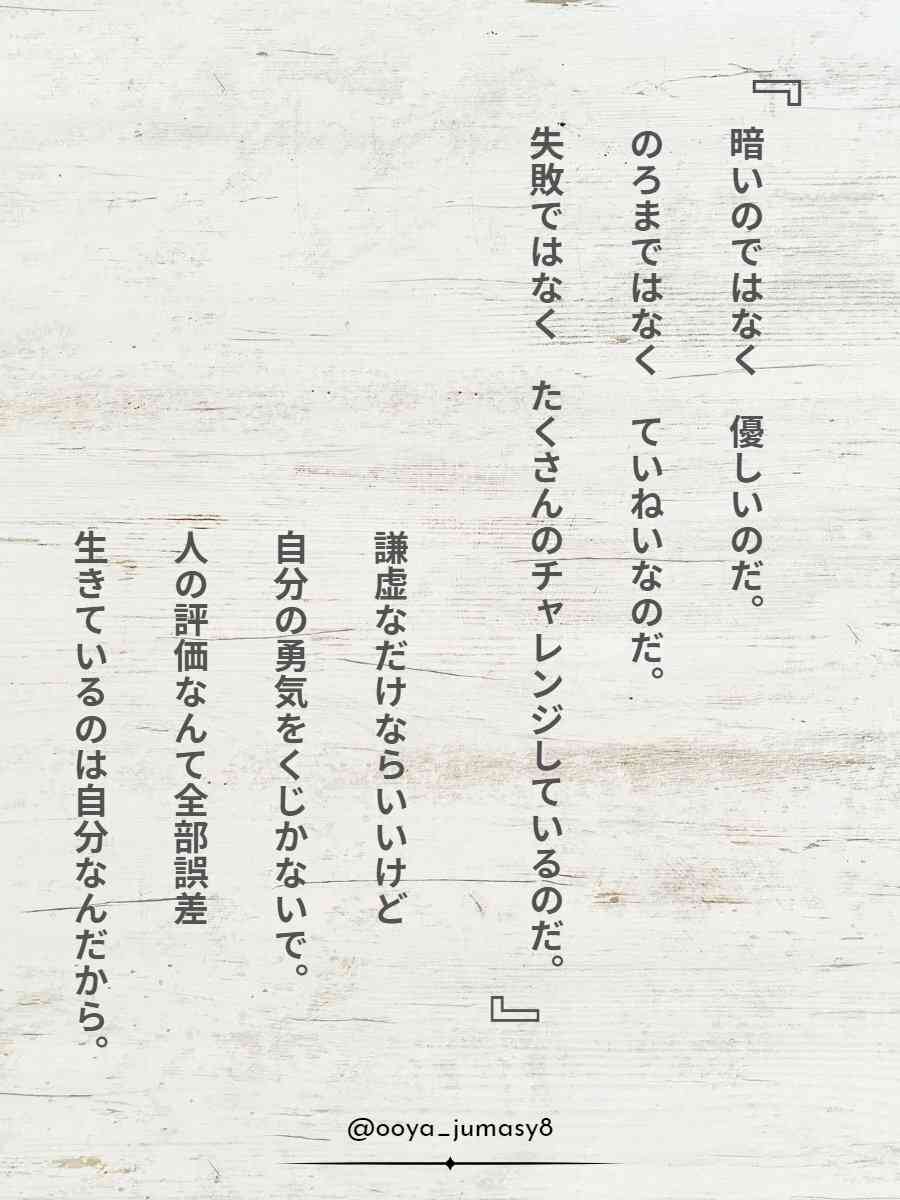 『
暗いのではなく　優しいのだ。
のろまではなく　ていねいなのだ。
失敗ではなく　たくさんのチャレンジしているのだ。
』
謙虚なだけならいいけど
自分の勇気をくじかないで。
人の評価なんて全部誤差
生きているのは自分なんだから。
@ooya_jumasy8